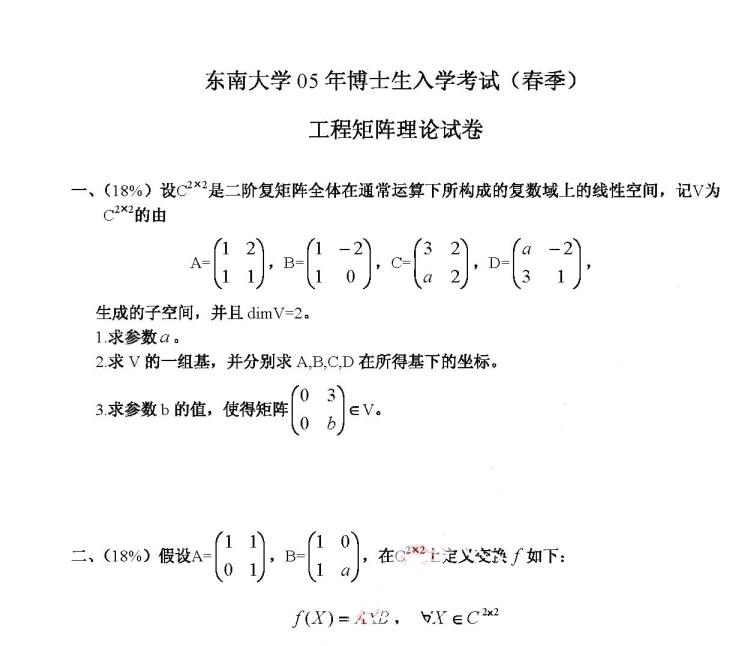 东南大学 05 年博士生入学考试（春季）
工程矩阵理论试卷
一、（18%）设C^{2×2}是二阶复矩阵全体在通常运算下所构成的复数域上的线性空间，记V为
C^{2×2}的由
A=\begin{pmatrix}1 & 2\\1 & 1\end{pmatrix}，B=\begin{pmatrix}1 & -2\\1 & 0\end{pmatrix}，C=\begin{pmatrix}3 & 2\\a & 2\end{pmatrix}，D=\begin{pmatrix}a & -2\\3 & 1\end{pmatrix}，
生成的子空间，并且 dimV=2。
1.求参数a。
2.求 V 的一组基，并分别求 A,B,C,D 在所得基下的坐标。
3.求参数 b 的值，使得矩阵\begin{pmatrix}0 & 3\\0 & b\end{pmatrix}∈V。
二、（18%）假设A=\begin{pmatrix}1 & 1\\0 & 1\end{pmatrix}，B=\begin{pmatrix}1 & 0\\1 & a\end{pmatrix}，在C^{2×2}上定义变换 f 如下：
f(X)=AXB，∀X∈C^{2×2}